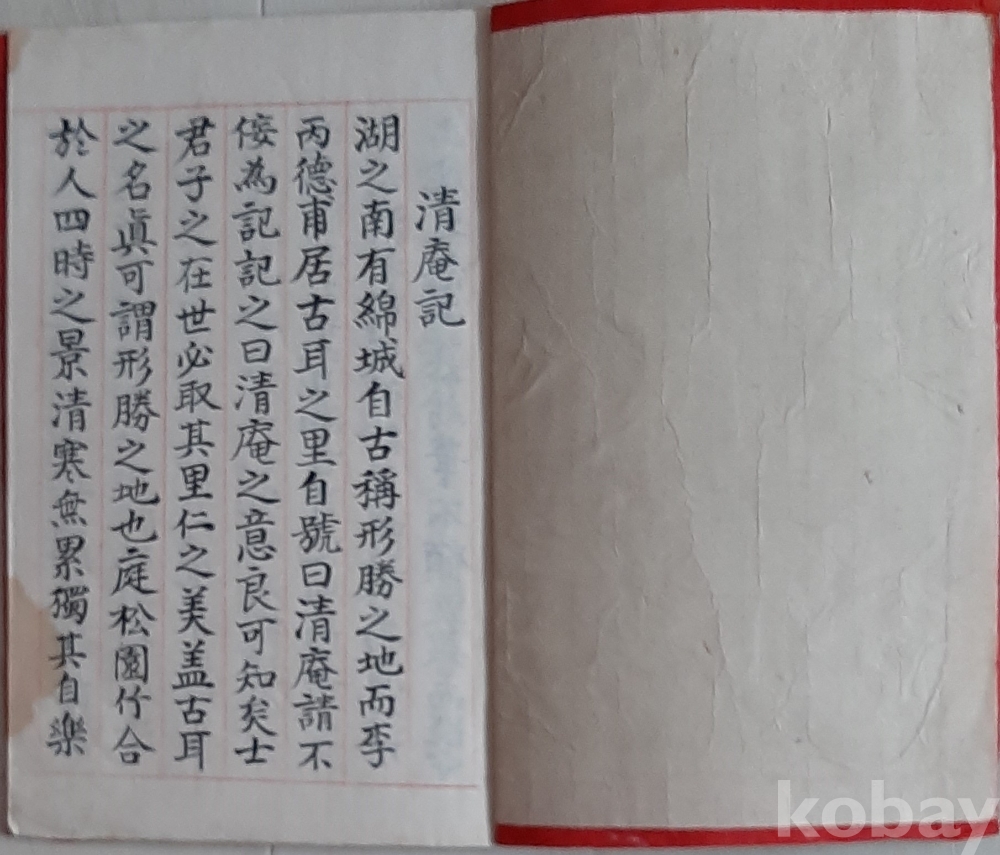 清庵記
湖之南有綿城自古稱形勝之地而李
丙德甫居古耳之里自號曰清庵請不
佞為記記之曰清庵之意良可知矣士
君子之在世必取其里仁之美盖古耳
之名眞可謂形勝之地也庭松園竹合
於人四時之景清寒無累獨其自樂
kobay